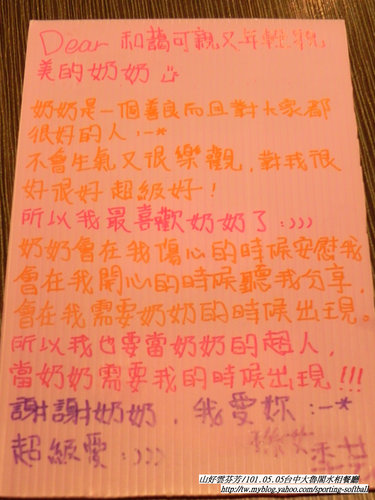 Dear 和藹可親又年輕貌
美的奶奶
奶奶是一個善良而且對大家都
很好的人:-*
不會生氣又很樂觀,對我很
好很好超級好!
所以我最喜歡奶奶了:)))
奶奶會在我傷心的時候安慰我
會在我開心的時候聽我分享,
會在我需要奶奶的時候出現。
所以我也要當奶奶的超人,
當奶奶需要我的時候出現!!!
謝謝奶奶,我愛妳:-*
超級愛:)))
山好雲芬芳/101.05.05台中大魯閣水相餐廳
http://tw.myblog.yahoo.com/sporting-softbal